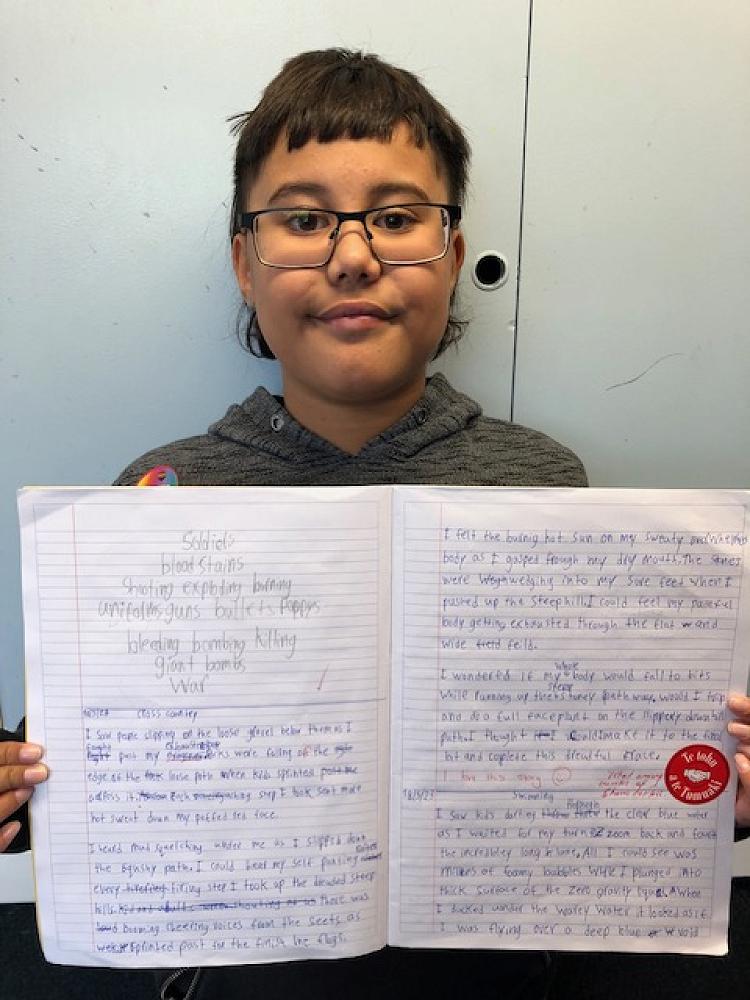 Soldiers
blood stains
Shooting exploding burning
uniforms guns bullets Poppys
bleeding bombing killing
giant bombs
War
Cross country
I saw people slipping on the loose gravel below them as I
past my rocks were falling off the
edge of the loose path when kids sprinted
across it. Each step I took sent more
hot sweat down my puffed red face.
I heard mud squelching under me as I slipped down
the squshy path. I could hear my self panting
every tiring step I took up the dreaded steep
hills. there was
booming cheering voices from the seets as
we sprinted past for the finish line flags.
I felt the burnig hot sun on my sweaty and
body as I gasped through my dry mouth. The stones
were wedging into my sore feed when I
pushed up the steep hill. I could feel my
body getting exhausted through the flat and
wide feild.
I wondered if my whole body would fall to bits
while running up the steep stoney path way. Would I trip
and do a full faceplant on the slippery down hill
path. I thought I could make it to the final
bit and coplete this dreadful race.
I love this story
Swimming
I saw kids darting through the clear blue water
as I waited for my turn to zoom back and fourth
the incredibley long lane. All I could see was
millions of foamy bubbles while I plunged into
thick surface of the zero gravity liquid. When
I ducked under the warey water it looked as if
I was flying over a deep blue void
Te tohu
a te Tumuaki